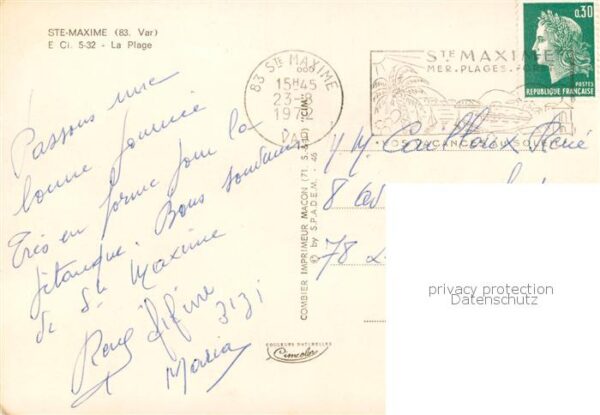 STE-MAXIME (83. Var)
E Ci. 5-32 - La Plage
Passons une
bonne journée
Très en forme pour la
pétanque. Bons souvenirs
de Ste Maxime
René Fifine
Zizi
Maria
83 STE MAXIME
15H45
23-8
1972
VAR
STE MAXIME
MER. PLAGES. FORÊT
VOS VACANCES AU SOLEIL
0,30
POSTES
REPUBLIQUE FRANÇAISE
COMBIER IMPRIMEUR MACON (71. S.&L.) "CIM"
© by S.P.A.D.E.M. - 46
René
8 av
78
COULEURS NATURELLES
Cimcolor
privacy protection
Datenschutz